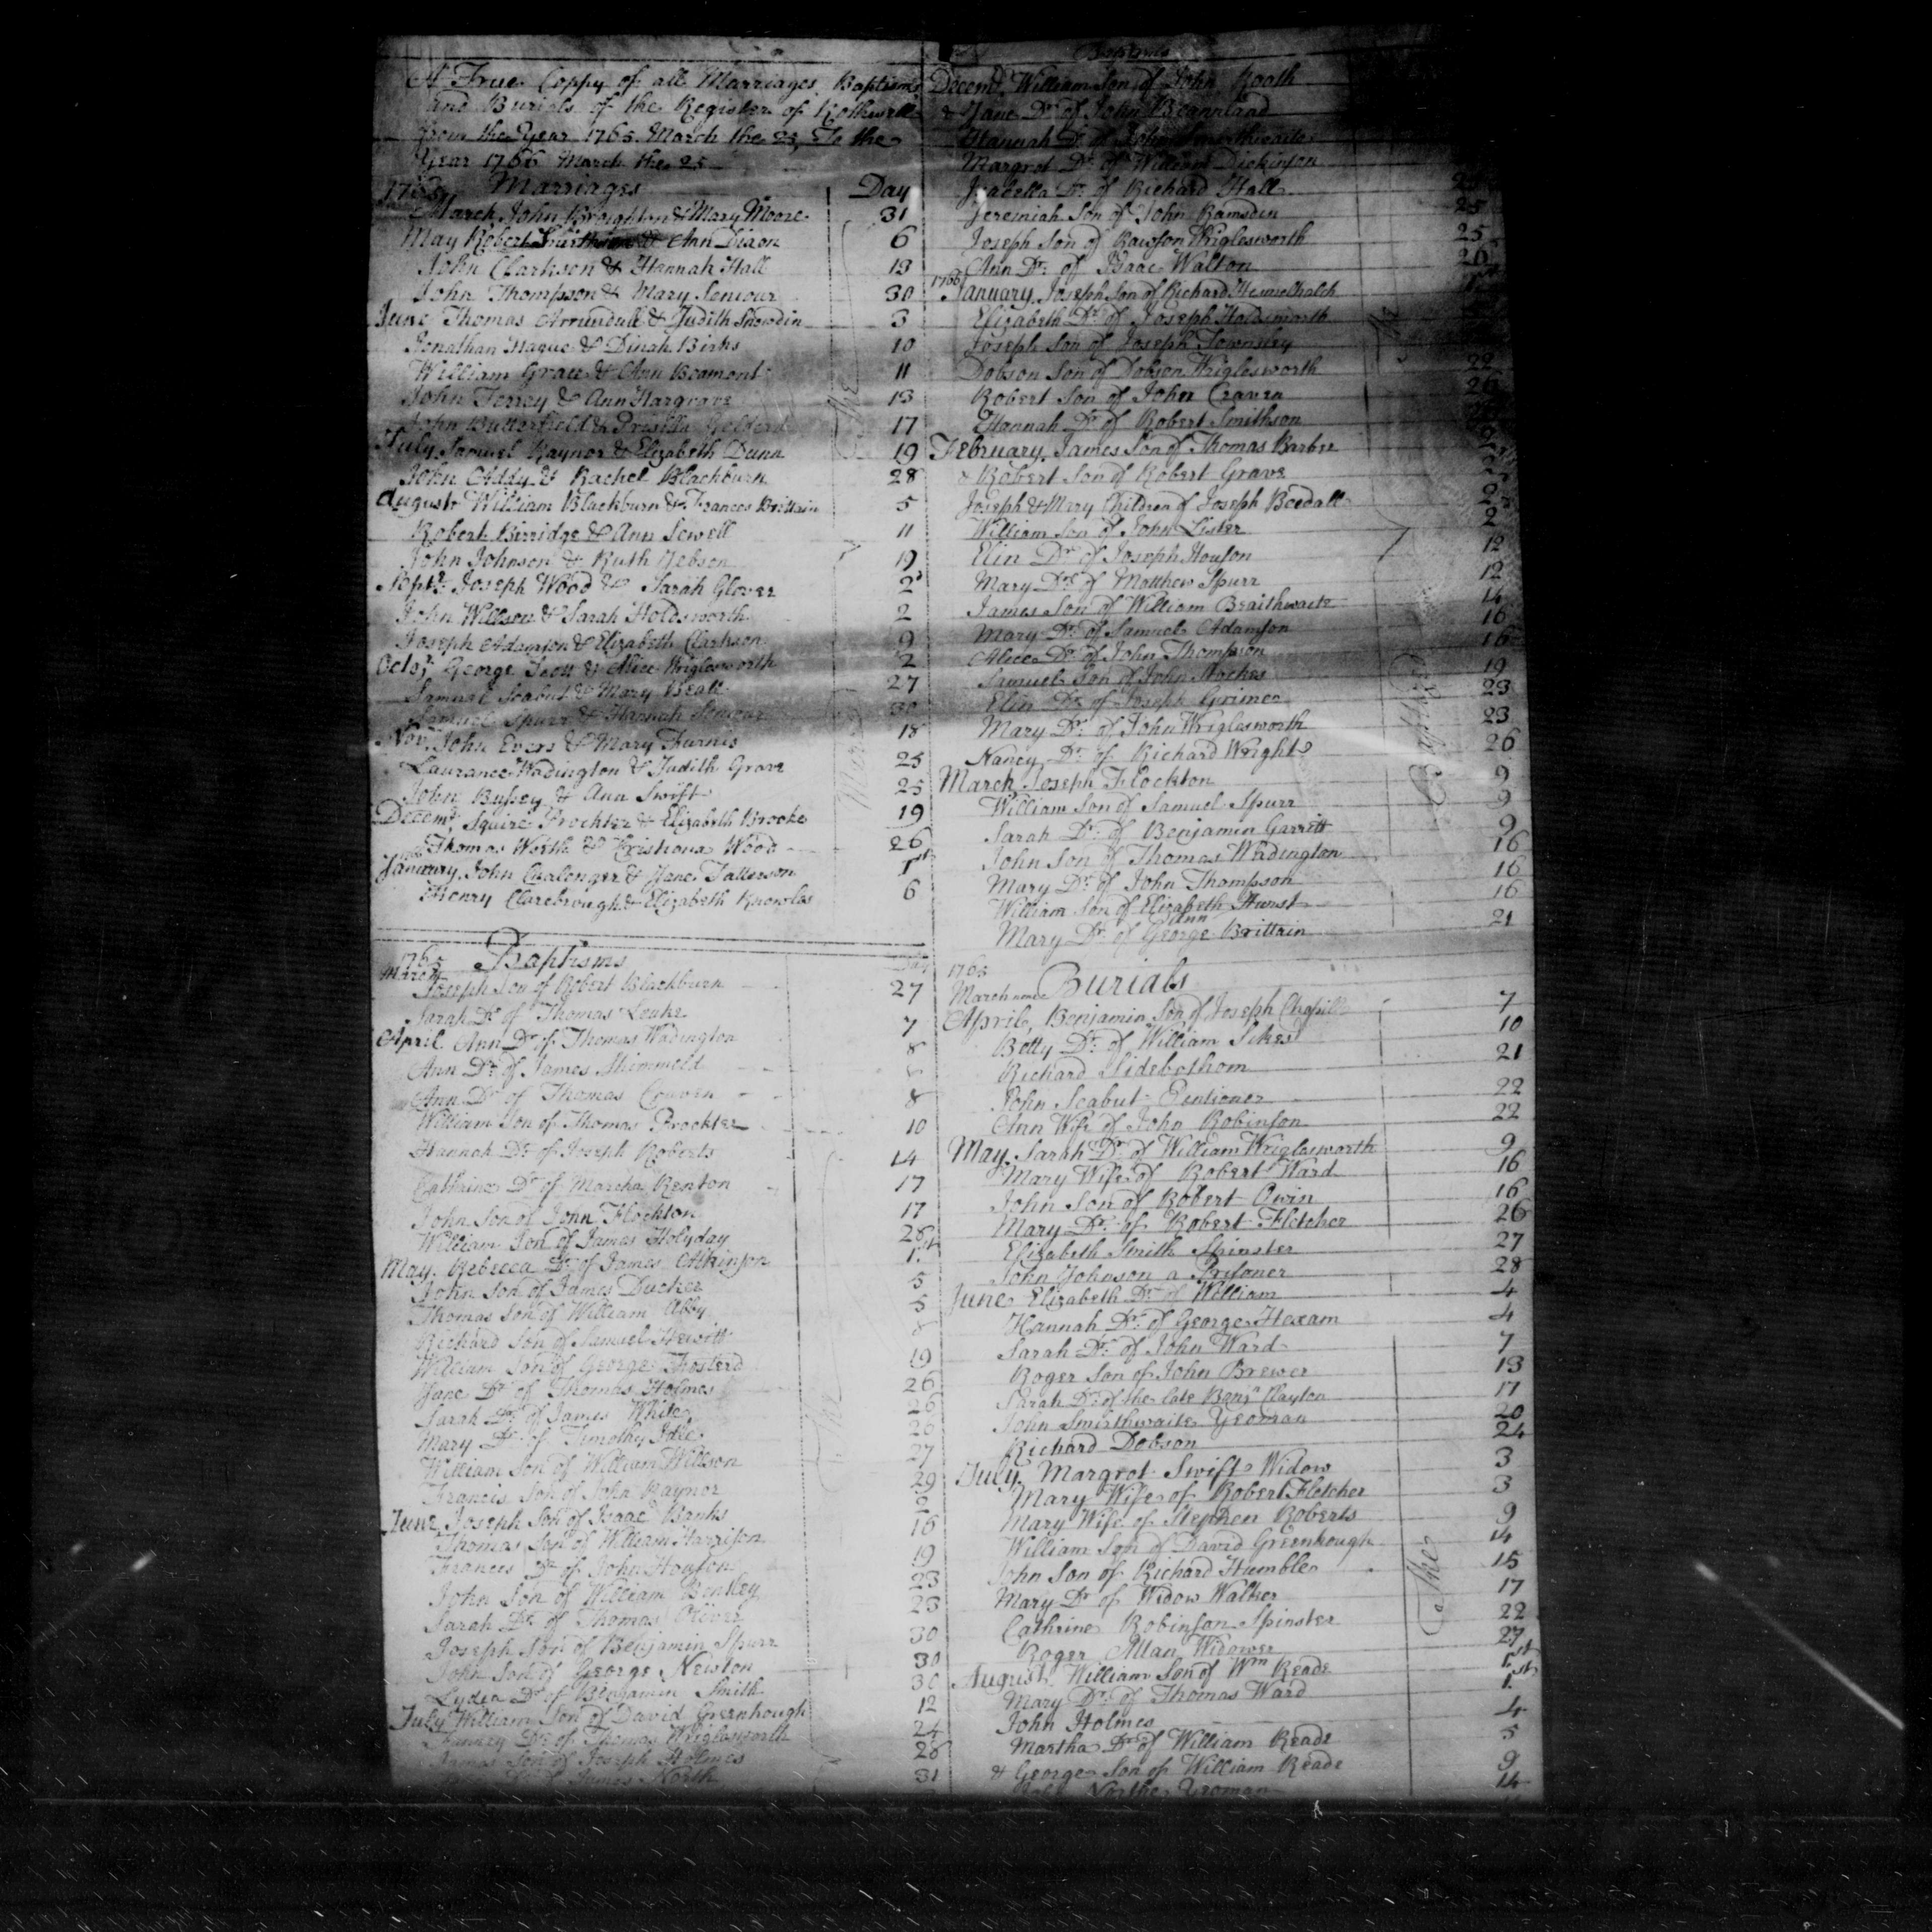 A True Coppy of all Marriages Baptisms
and Burials of the Register of Rothwell
from the Year 1765 March the 25, To the
Year 1766 March the 25
1765 Marriages Day
March John Broighton & Mary Moore 31
May Robert & Ann Dixon 6
John Clarkson & Hannah Hall 13
John Thompson & Mary Seniour 30
June Thomas Arrundale & Judith Snowdin 3
Jonathan Hague & Dinah Birks 10
William Grave & Ann Beamont 11
John Ferrey & Ann Hargrave 13
John Butterfield & Prisilla 17
July Samuel Raynor & Elizabeth Dunn 19
John Addy & Rachel Blackburn 28
August William Blackburn & Frances Brittain 5
Robert Birridge & Ann Sewell 11
John Johnson & Ruth Hebson 19
Septr. Joseph Wood & Sarah Glover 2d
John Willson & Sarah Holdsworth 2
Joseph Adamson & Elizabeth Clarkson 9
Octor. George Scott & Alice Wriglesworth 2
Samuel Scabut & Mary Beall 27
Samuel Spurr & Hannah Seniour 30
Nov. John Evers & Mary Furnis 18
Laurance Wadington & Judith Grave 25
John Bussey & Ann Swift 25
Decemr. Squire Prockter & Elizabeth Brooke 19
Thomas Worth & Wood 26
January John Chalenger & Jane Patterson 1st
Henry Clarebrough & Elizabeth Knowles 6
1765 Baptisms Day
March Joseph Son of Robert Blackburn 27
Sarah Dr. of Thomas Leake
April Ann Dr. of Thomas Wadington 7
Ann Dr. of James Shimmeld 8
Ann Dr. of Thomas Craven 8
William Son of Thomas Prockter 10
Hannah Dr. of Joseph Roberts 14
Cathrine Dr. of Marcha Renton 17
John Son of John Flockton 17
William Son of James Holyday 28
May Rebecca Dr. of James Atkinson 1st
John Son of James Ducker 5
Thomas Son of William Abby 5
Richard Son of Samuel Hewitt
William Son of George Fosterd 19
Jane Dr. of Thomas Holmes 26
Sarah Dr. of James White 26
Mary Dr. of Timothy Idle 26
William Son of William Willson 27
Francis Son of John Raynor 29
June Joseph Son of Isaac Banks 2
Thomas Son of William Harrison 16
Frances Dr. of John Houson 19
John Son of William Bentley 23
Sarah Dr. of Thomas Oliver 23
Joseph Son of Benjamin Spurr 30
John Son of George Newton 30
Lydea Dr. of Benjamin Smith 30
July William Son of David Greenhough 12
Nancy Dr. of Thomas Wriglesworth 24
James Son of Joseph Holmes 28
of James North 31
Baptisms
Decemr. William Son of John Booth
& Jane Dr. of John Beannland
Hannah Dr. of John Smorthwaite
Margret Dr. of William Dickinson
Isabella Dr. of Richard Hall 25
Jeremiah Son of John Ramsden 25
Joseph Son of Rawson Wriglesworth 25
Ann Dr. of Isaac Walton 26
1766 January Joseph Son of Richard Hesmelhalch 1st
Elizabeth Dr. of Joseph Holdsworth
Joseph Son of Joseph Townsley
Dobson Son of Dobson Wriglesworth 22
Robert Son of John Craven 26
Hannah Dr. of Robert Smithson
February James Son of Thomas Barber 2
& Robert Son of Robert Grave 2
Joseph & Mary Children of Joseph Beedall 2
William Son of John Lister 2
Elin Dr. of Joseph Houson 12
Mary Dr. of Matthew Spurr 12
James Son of William Braithwaite 14
Mary Dr. of Samuel Adamson 16
Alice Dr. of John Thompson 16
Samuel Son of John Starkes 19
Elin Dr. of Joseph Grimes 23
Mary Dr. of John Wriglesworth 23
Nancy Dr. of Richard Wright 26
March Joseph Flockton 9
William Son of Samuel Spurr 9
Sarah Dr. of Benjamin Garritt 9
John Son of Thomas Wadington 16
Mary Dr. of John Thompson 16
William Son of Elizabeth Hurst 16
Mary Dr. of George Brittain 21
1765 Burials
March none
April, Benjamin Son of Joseph 7
Betty Dr. of William Sikes 10
Richard Sidebothom 21
John Scabut 22
Ann Wife of John Robinson 22
May Sarah Dr. of William Wriglesworth 9
Mary Wife of Robert Ward 16
John Son of Robert Owin 16
Mary Dr. of Robert Fletcher 26
Elizabeth Smith Spinster 27
John Johnson a Prisoner 28
June Elizabeth Dr. of William 4
Hannah Dr. of George Hexam 4
Sarah Dr. of John Ward 7
Roger Son of John Brewer 13
Sarah Dr. of the late Benjn. Clayton 17
John Smorthwaite Yeoman 20
Richard Dobson 24
July Margret Swift Widow 3
Mary Wife of Robert Fletcher 3
Mary Wife of Stephen Roberts 9
William Son of David Greenhough 14
John Son of Richard Humble 15
Mary Dr. of Widow Walker 17
Cathrine Robinson Spinster 22
Roger Allan Widower 27
August William Son of Wm. Reade 1st
Mary Dr. of Thomas Ward 1st
John Holmes 4
Martha Dr. of William Reade 5
& George Son of William Reade 9
John Northe Yeoman 14
The
Mard.
The
Baptized
The